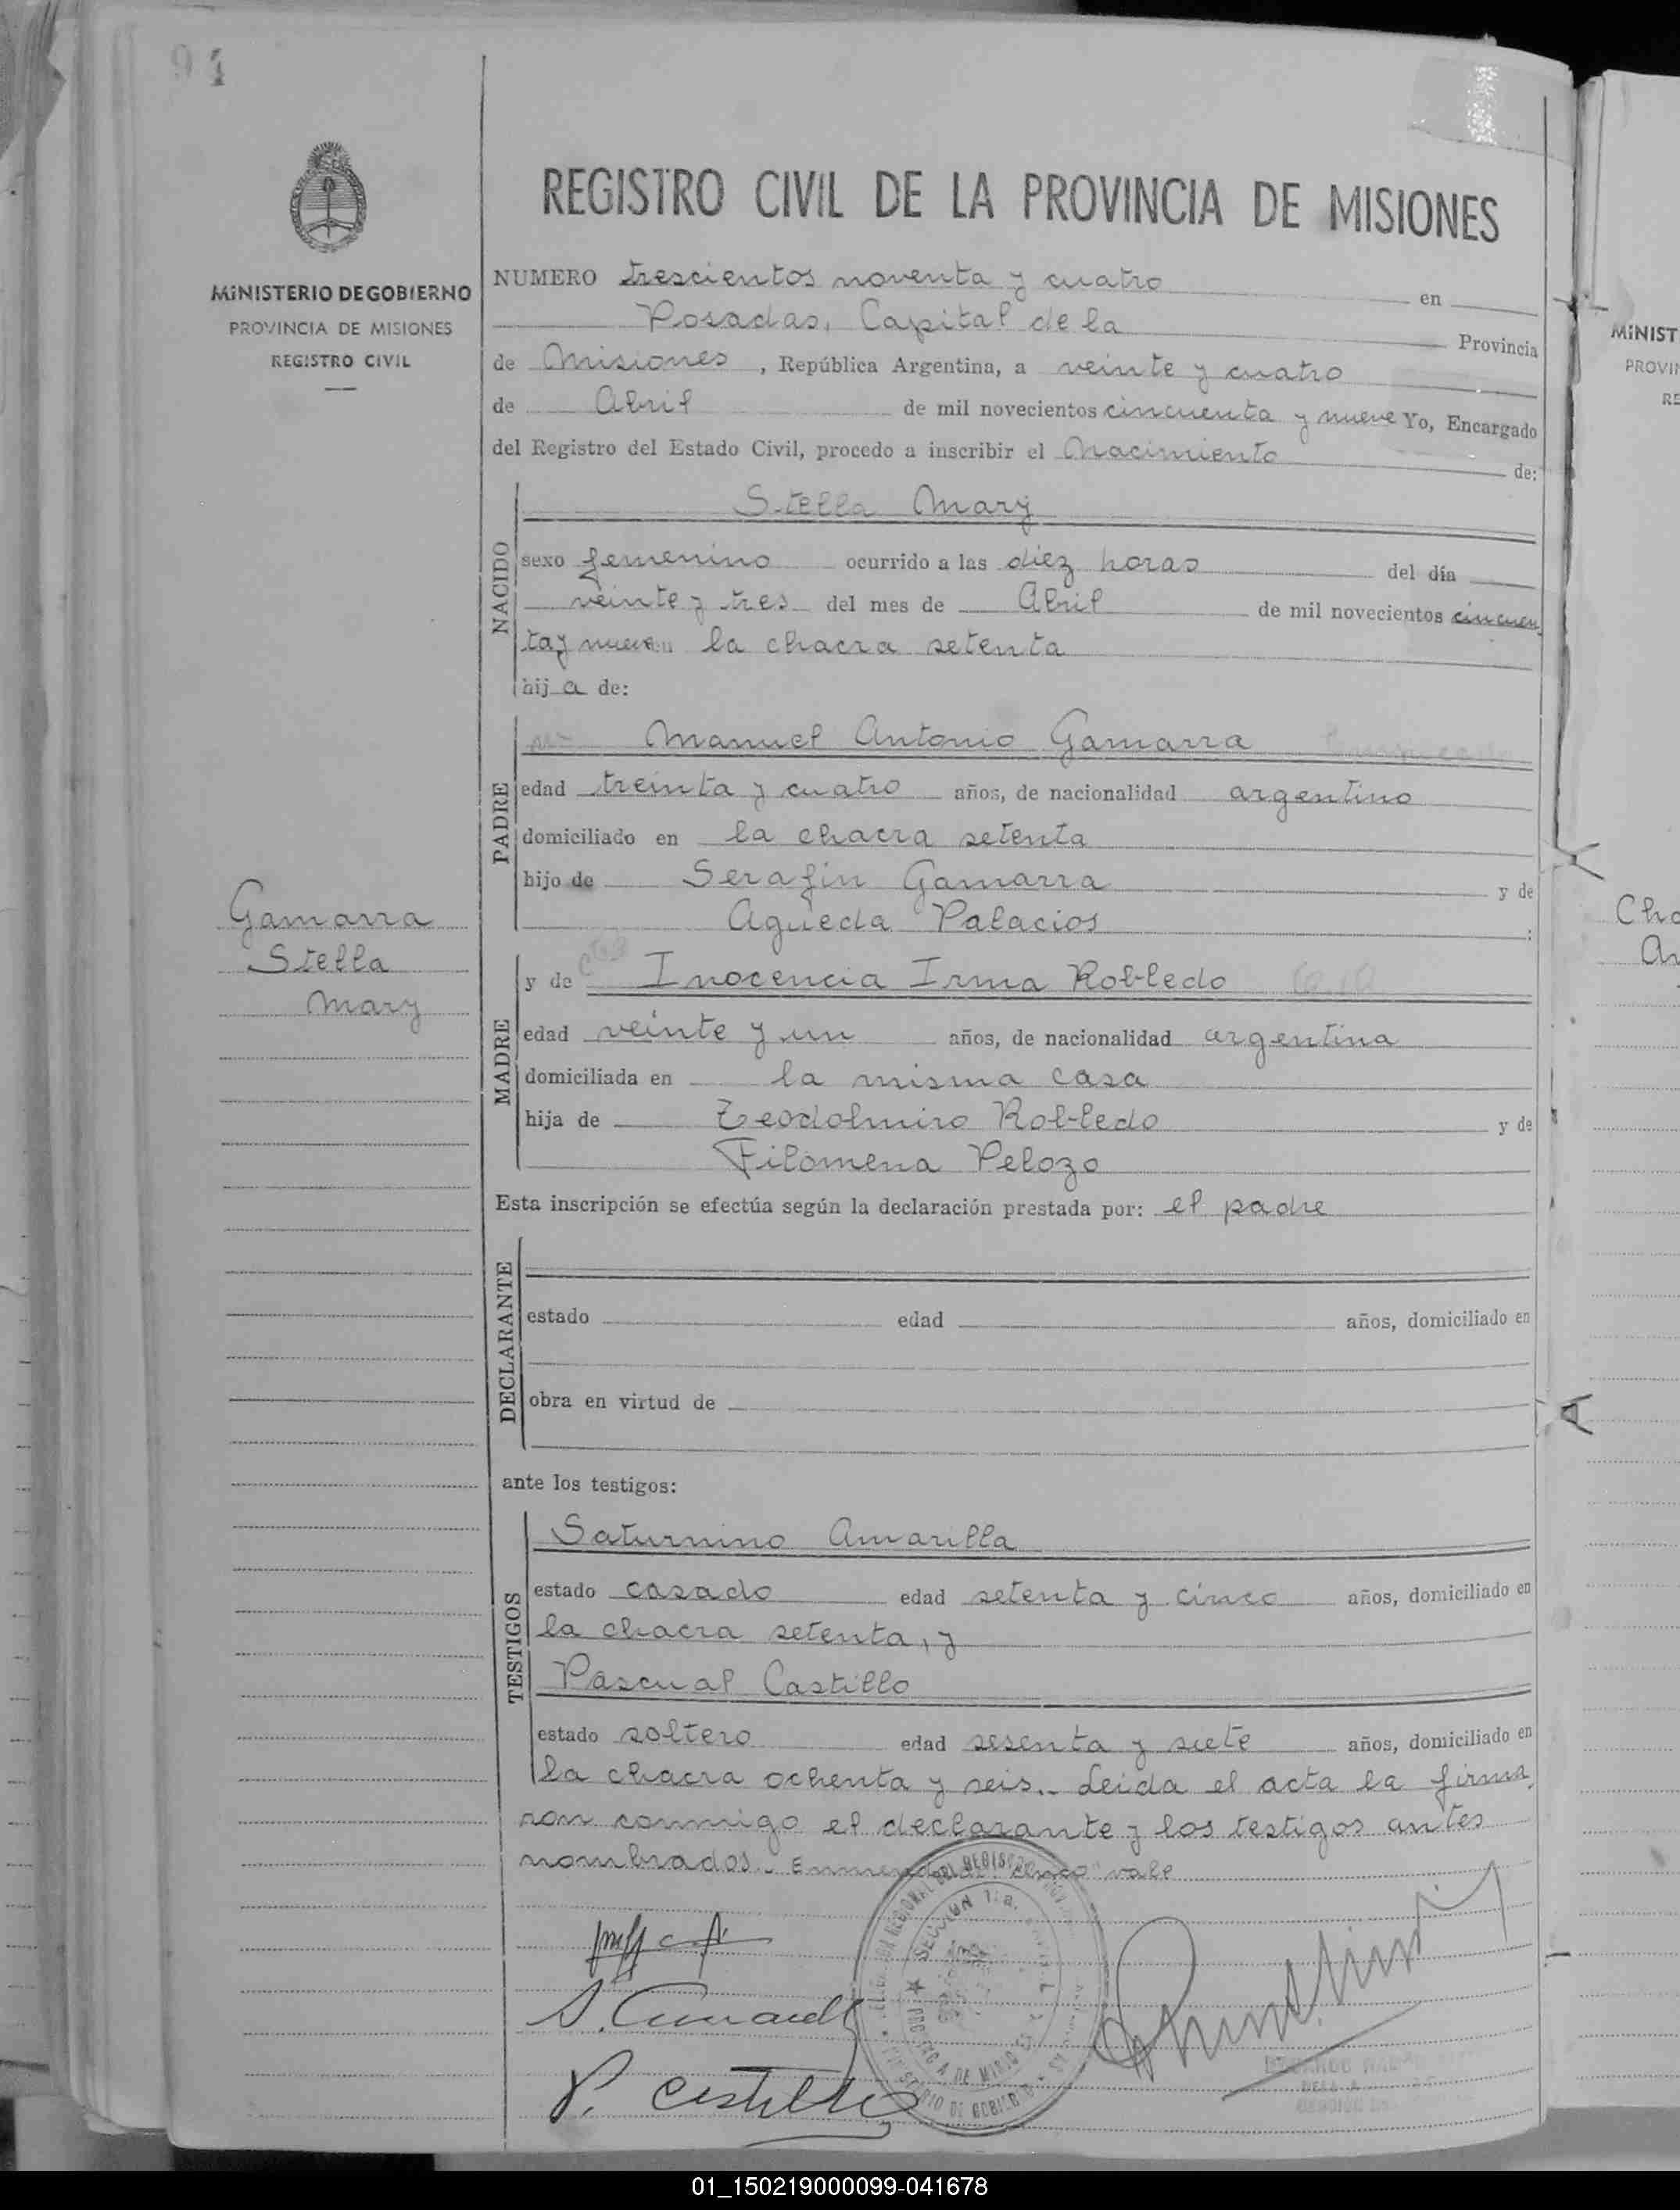 91
MINISTERIO DE GOBIERNO
PROVINCIA DE MISIONES
REGISTRO CIVIL
Gamarra
Stella
Mary
REGISTRO CIVIL DE LA PROVINCIA DE MISIONES
NUMERO trescientos noventa y cuatro en
Posadas, Capital de la Provincia
de Misiones, República Argentina, a veinte y cuatro
de Abril de mil novecientos cincuenta y nueve Yo, Encargado
del Registro del Estado Civil, procedo a inscribir el Nacimiento de:
NACIDO
Stella Mary
sexo femenino ocurrido a las diez horas del día
veinte y tres del mes de Abril de mil novecientos cincuen
ta y nueve en la chacra setenta
hija de:
PADRE
Manuel Antonio Gamarra
edad treinta y cuatro años, de nacionalidad argentino
domiciliado en la chacra setenta
hijo de Serafin Gamarra y de
Agueda Palacios ;
MADRE
y de Inocencia Irma Robledo
edad veinte y un años, de nacionalidad argentina
domiciliada en la misma casa
hija de Teodolmiro Robledo y de
Filomena Pelozo
Esta inscripción se efectúa según la declaración prestada por: el padre
DECLARANTE
estado edad años, domiciliado en
obra en virtud de
ante los testigos:
TESTIGOS
Saturnino Amarilla
estado casado edad setenta y cinco años, domiciliado en
la chacra setenta, y
Pascual Castillo
estado soltero edad sesenta y siete años, domiciliado en
la chacra ochenta y seis.. Leida el acta la firma
ron conmigo el declarante y los testigos antes
nombrados.. vale
P. Castillo
MINIST
PROVIN
RE
Cha
An
01_150219000099-041678